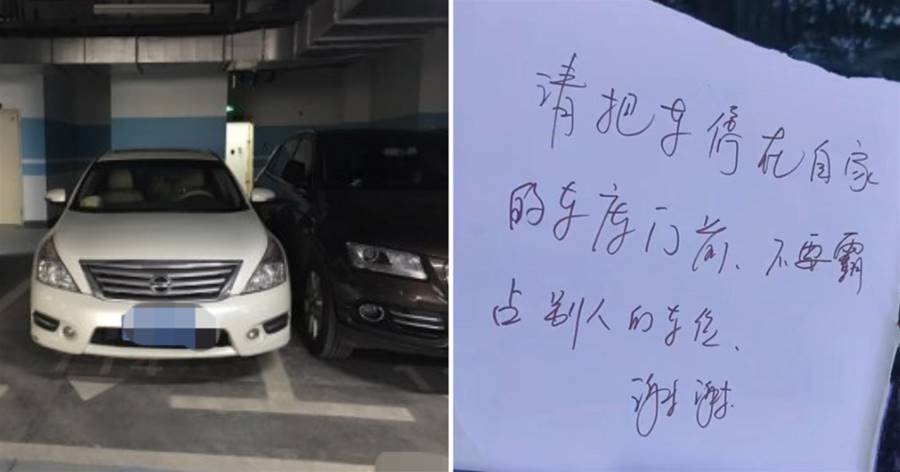 请把车停在自家
的车库门前、不要霸
占别人的车位、
谢谢.